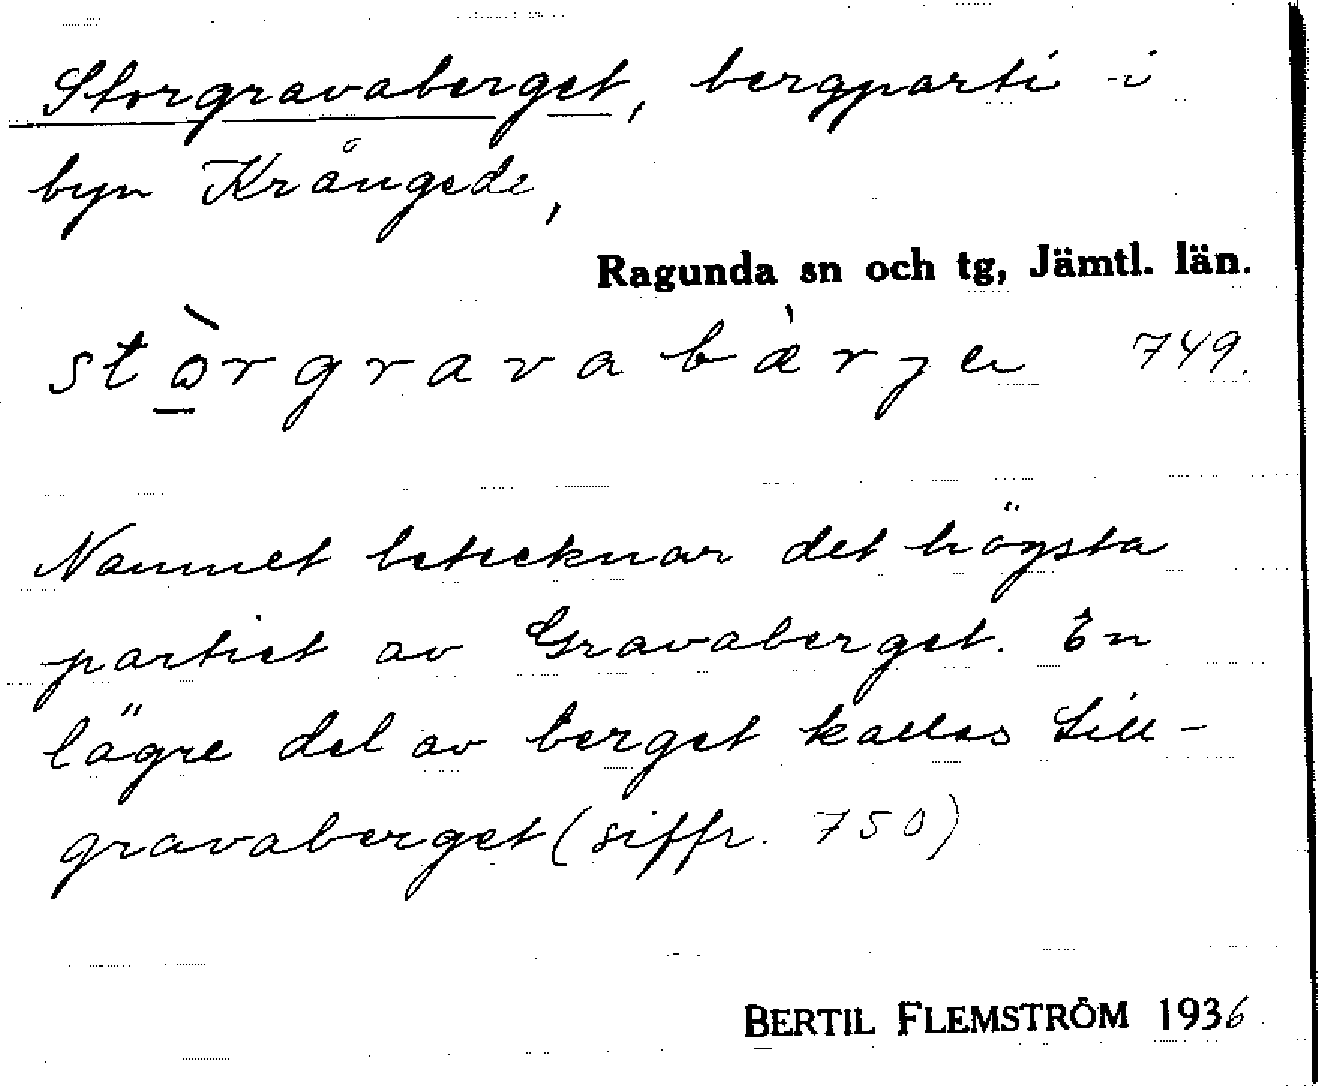 Storgravaberget, bergparti i
byn Krångede,
Ragunda sn och tg, Jämtl. län.
stò̱rgravabàrjen 749.
Namnet betecknar det högsta
partiet av Gravaberget. En
lägre del av berget kallas Lill-
gravaberget (siffr. 750)
BERTIL FLEMSTRÖM 1936